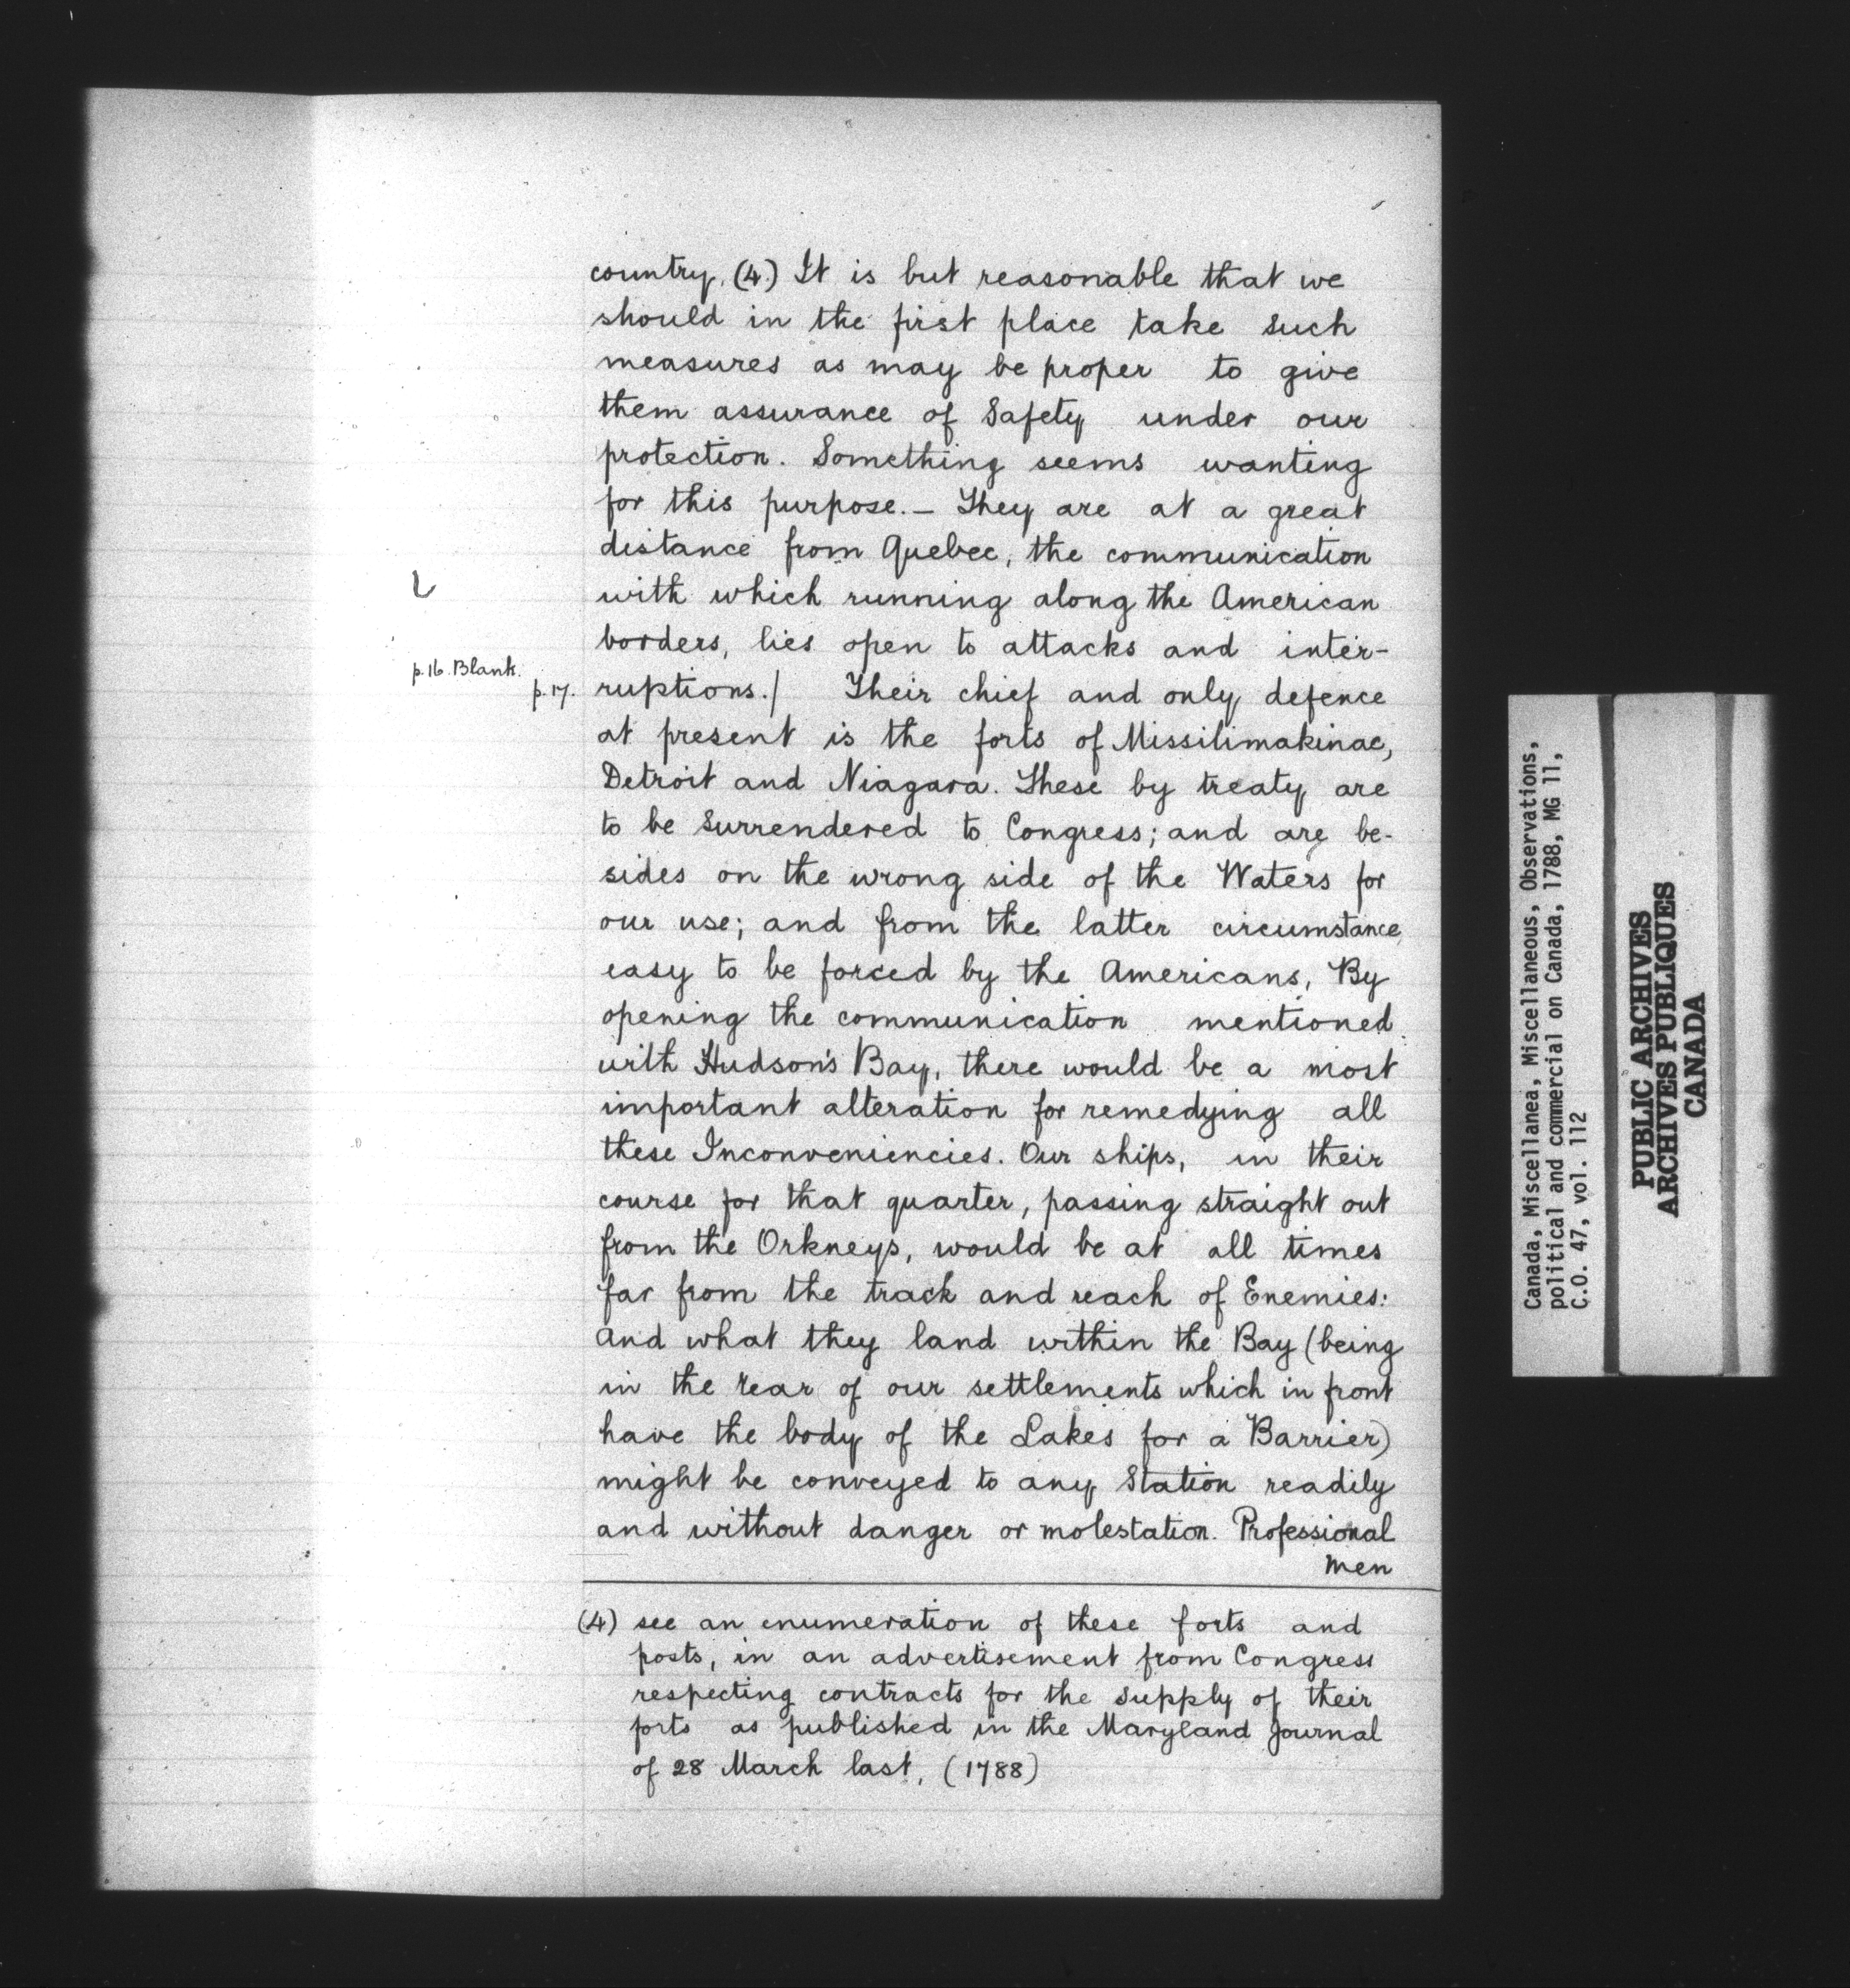 country. (4.) It is but reasonable that we
should in the first place take such
measures as may be proper to give
them assurance of Safety under our
protection. Something seems wanting
for this purpose.— They are at a great
distance from Quebec, the communication
with which running along the American
borders, lies open to attacks and inter-
p.16 Blank.
p.17. ruptions./ Their chief and only defence
at present is the forts of Missilimakinac,
Detroit and Niagara. These by treaty are
to be Surrendered to Congress; and are be-
sides on the wrong side of the Waters for
our use; and from the latter circumstance,
easy to be forced by the Americans, By
opening the communication mentioned
with Hudson's Bay, there would be a most
important alteration for remedying all
these Inconveniencies. Our ships, in their
course for that quarter, passing straight out
from the Orkneys, would be at all times
far from the track and reach of Enemies:
and what they land within the Bay (being
in the rear of our settlements which in front
have the body of the Lakes for a Barrier)
might be conveyed to any Station readily
and without danger or molestation. Professional
men
(4) see an enumeration of these forts and
posts, in an advertisement from Congress
respecting contracts for the supply of their
forts as published in the Maryland Journal
of 28 March last, (1788)
Canada, Miscellanea, Miscellaneous, Observations,
political and commercial on Canada, 1788, MG 11,
C.O. 47, vol. 112
PUBLIC ARCHIVES
ARCHIVES PUBLIQUES
CANADA